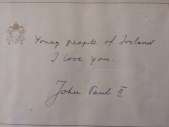 Young people of Ireland
I love you.
John Paul II